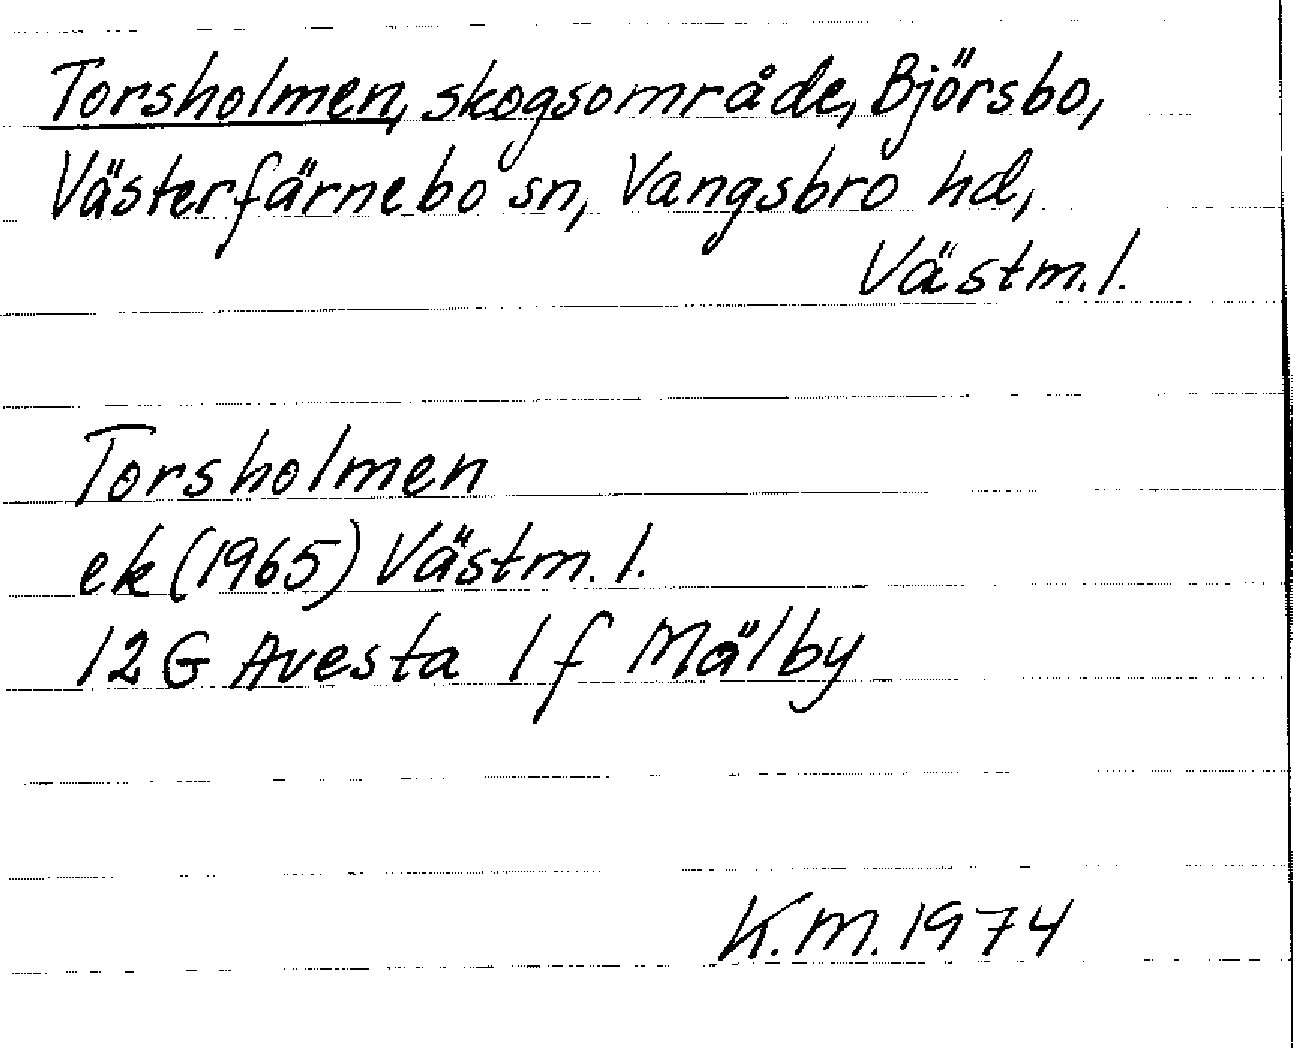 Torsholmen, skogsområde, Björsbo,
Västerfärnebo sn, Vangsbro hd,
Västm. l.
Torsholmen
ek (1965) Västm. l.
12 G Avesta 1 f Mälby
K.M. 1974